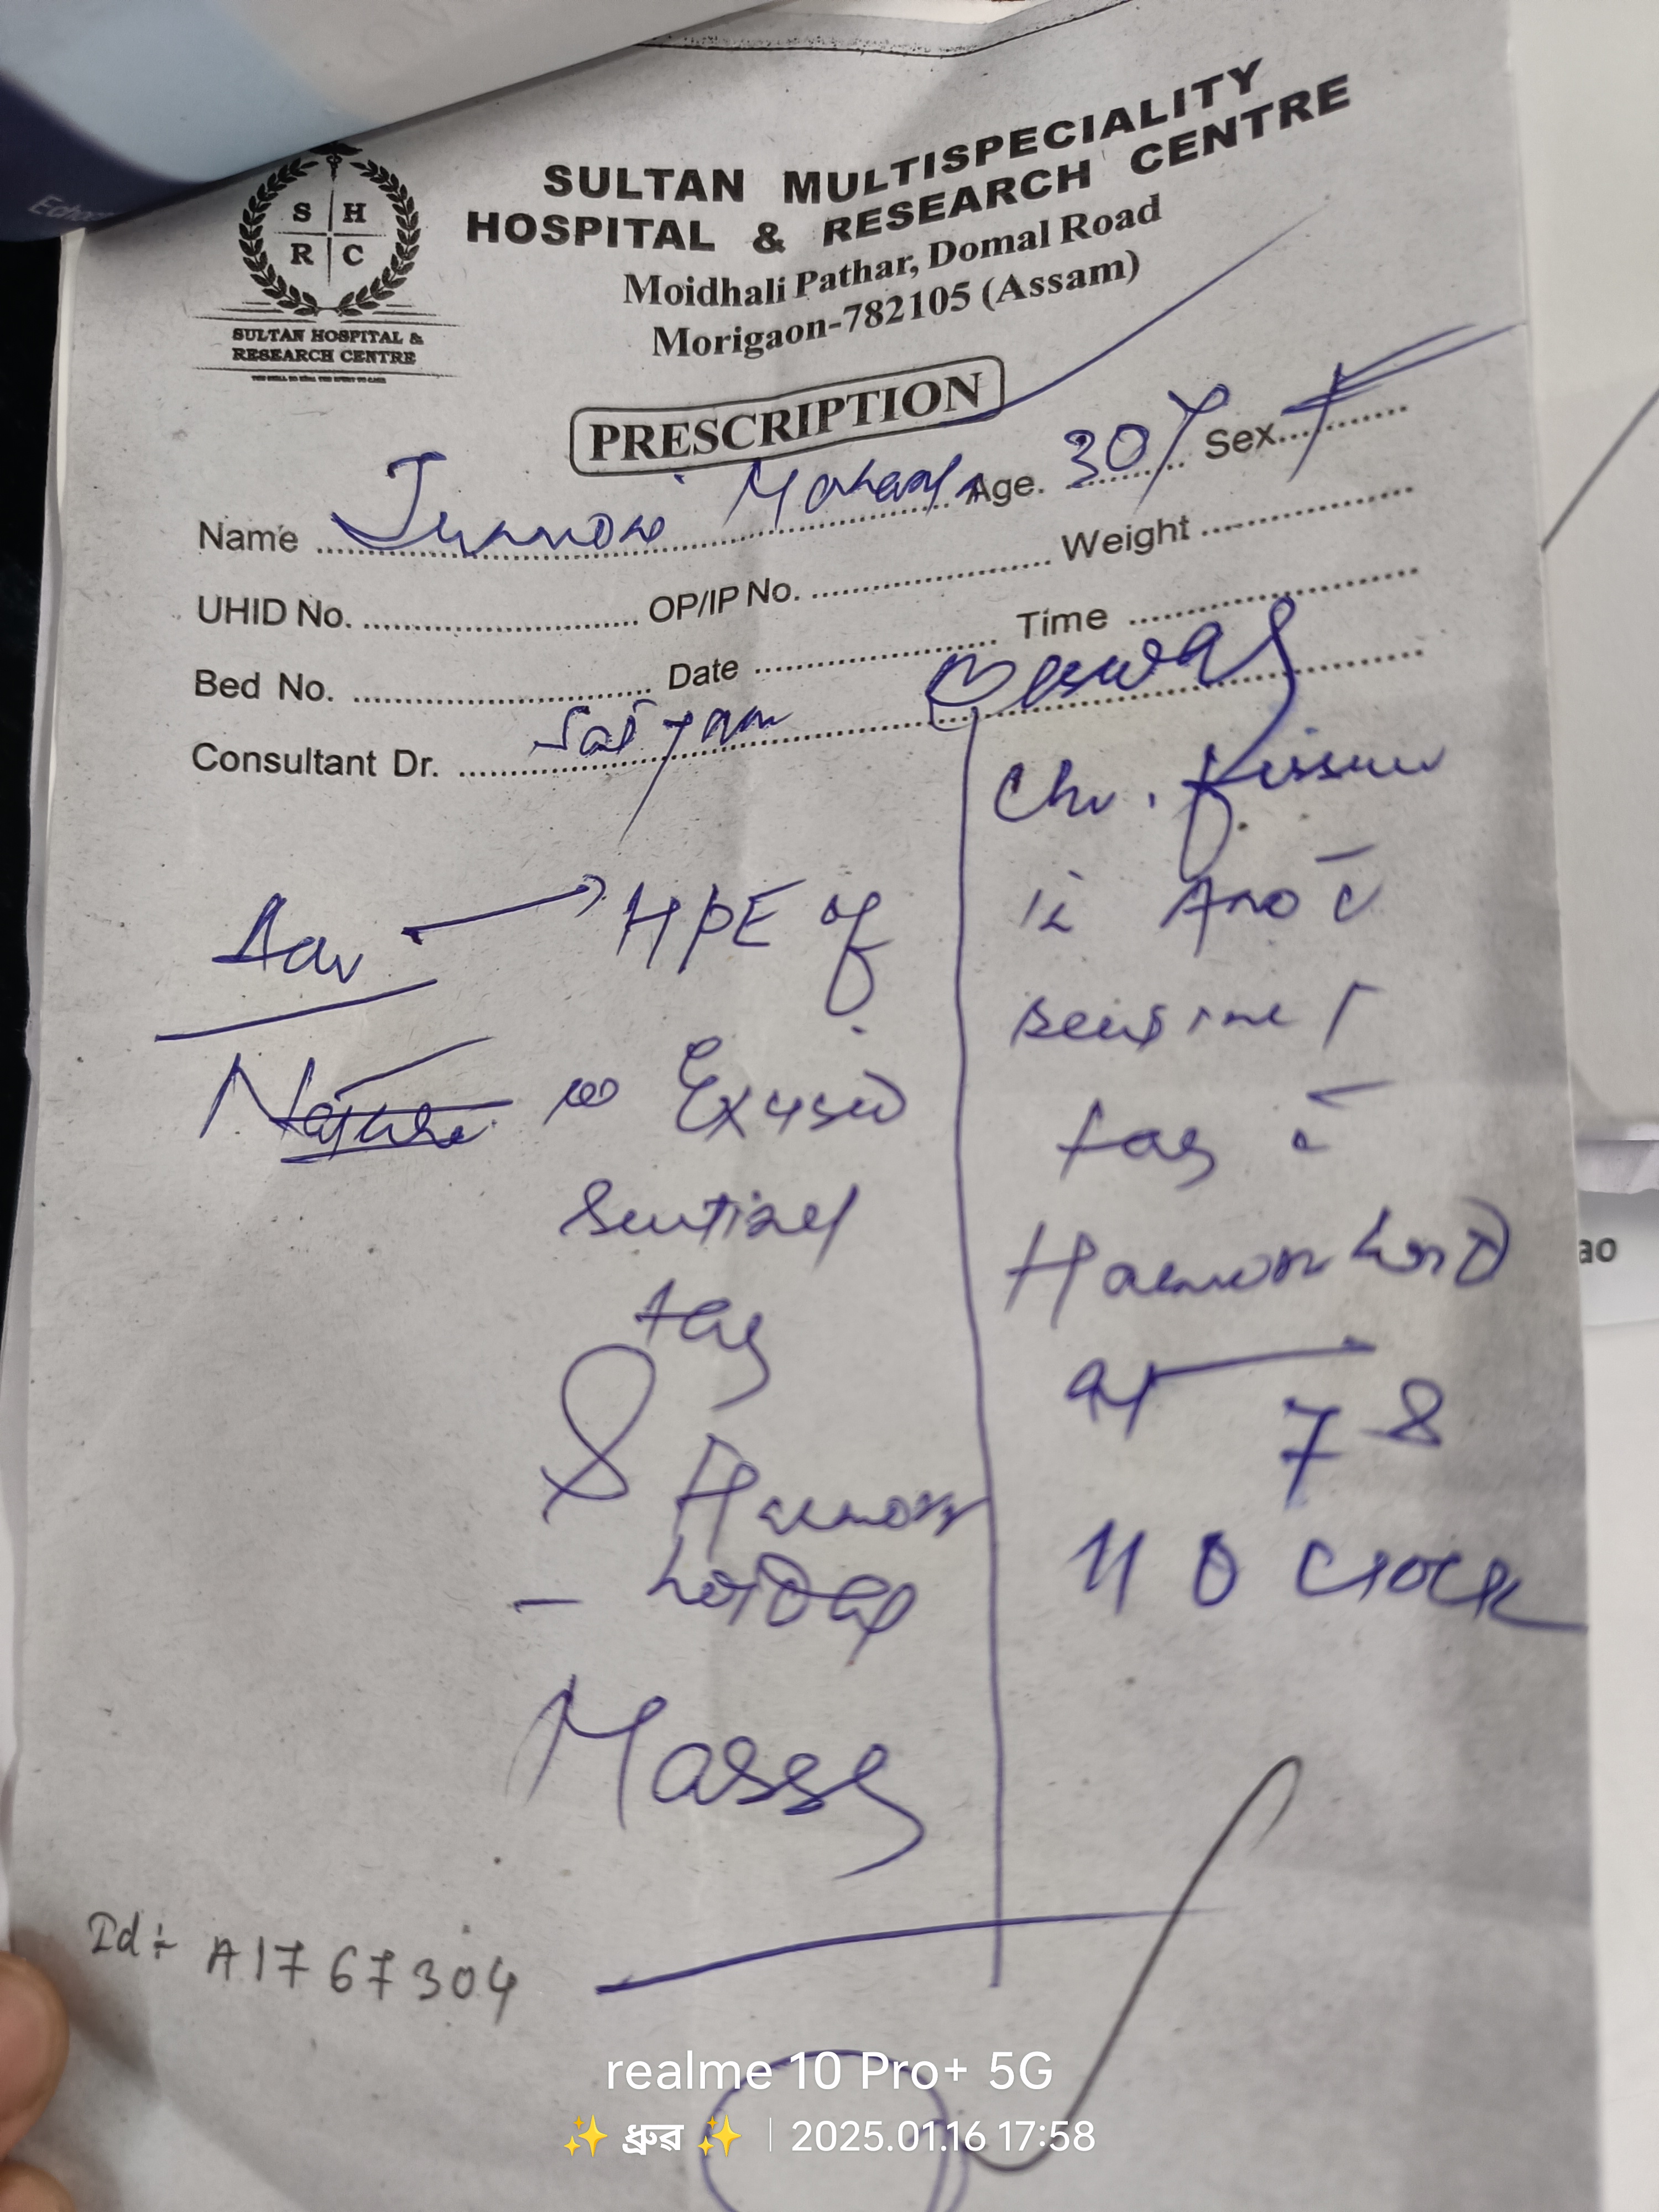 SULTAN MULTISPECIALITY
HOSPITAL & RESEARCH CENTRE
Moidhali Pathar, Domal Road
Morigaon-782105 (Assam)
S H
R C
SULTAN HOSPITAL &
RESEARCH CENTRE
PRESCRIPTION
Name Age. 30 Y Sex F
UHID No. OP/IP No. Weight
Bed No. Date Time
Consultant Dr. Satyam
Adv → HPE of
Excised
Sentinel
tag
& Haemorr
- hoidal
Mass
Chr. fissure
in Ano c̄
sentinel
tag c̄
Haemorrhoid
at 7 &
11 O Clock
Id:- A1767304
realme 10 Pro+ 5G
✨ ধ্ৰুৱ ✨ | 2025.01.16 17:58